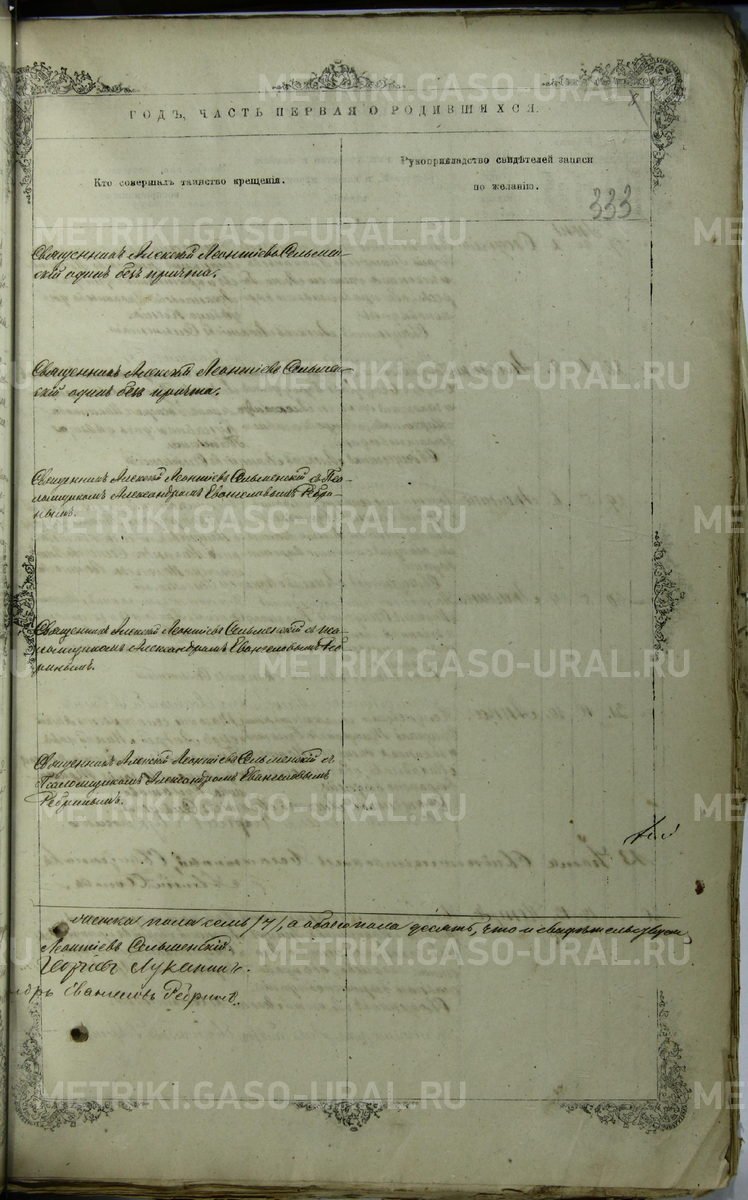 ГОДЪ, ЧАСТЬ ПЕРВАЯ О РОДИВШИХСЯ.
Кто совершалъ таинство крещенія.
Рукоприкладство свидѣтелей записи
по желанію.
333
Священникъ Алексій Леонтіевъ Сельмен-
скій одинъ безъ причта.
Священникъ Алексій Леонтіевъ Сельмен-
скій одинъ безъ причта.
Священникъ Алексій Леонтіевъ Сельменскій съ Пса-
ломщикомъ Александромъ Евангеловымъ Ребри-
нымъ.
Священникъ Алексій Леонтіевъ Сельменскій съ Пса-
ломщикомъ Александромъ Евангеловымъ Реб
ринымъ.
Священникъ Алексій Леонтіевъ Сельменскій съ
Псаломщикомъ Александромъ Евангеловымъ
Ребринымъ.
женска пола семь /7/, а обоего пола десять, что и свидѣтельствуемъ
Леонтіевъ Сельменскій.
Георгіевъ Луканинъ.
Евангеловъ Ребринъ.
METRIKI.GASO-URAL.RU